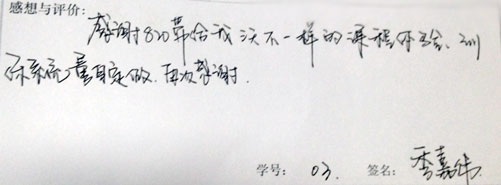 感想与评价:
感谢820带给我这不一样的课程体验、训
练系统量身定做.再次感谢.
学号: 03. 签名: 季嘉伟